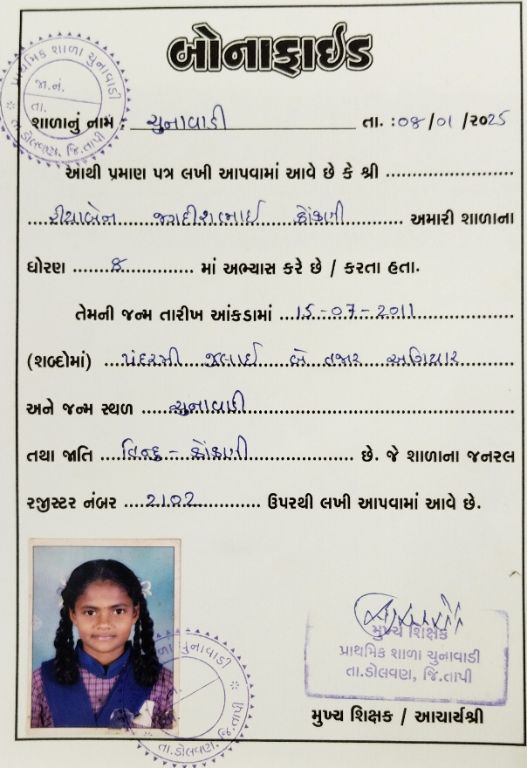 બોનાફાઈડ
પ્રાથમિક શાળા ચુનાવાડી
જા.નં.
તા.
તા.ડોલવણ, જિ.તાપી
શાળાનું નામ : ચુનાવાડી તા. : ૦૪/૦૧/૨૦૨૫
આથી પ્રમાણ પત્ર લખી આપવામાં આવે છે કે શ્રી
રીયાબેન જગદીશભાઈ કોંકણી અમારી શાળાના
ધોરણ 8 માં અભ્યાસ કરે છે / કરતા હતા.
તેમની જન્મ તારીખ આંકડામાં 15-07-2011
(શબ્દોમાં) પંદરમી જુલાઈ બે હજાર અગિયાર
અને જન્મ સ્થળ ચુનાવાડી
તથા જાતિ હિન્દુ - કોંકણી છે. જે શાળાના જનરલ
રજીસ્ટર નંબર 2102 ઉપરથી લખી આપવામાં આવે છે.
શાળા ચુનાવાડી
તા.ડોલવણ, જિ.તાપી
મુખ્ય શિક્ષક
પ્રાથમિક શાળા ચુનાવાડી
તા.ડોલવણ, જિ.તાપી
મુખ્ય શિક્ષક / આચાર્યશ્રી